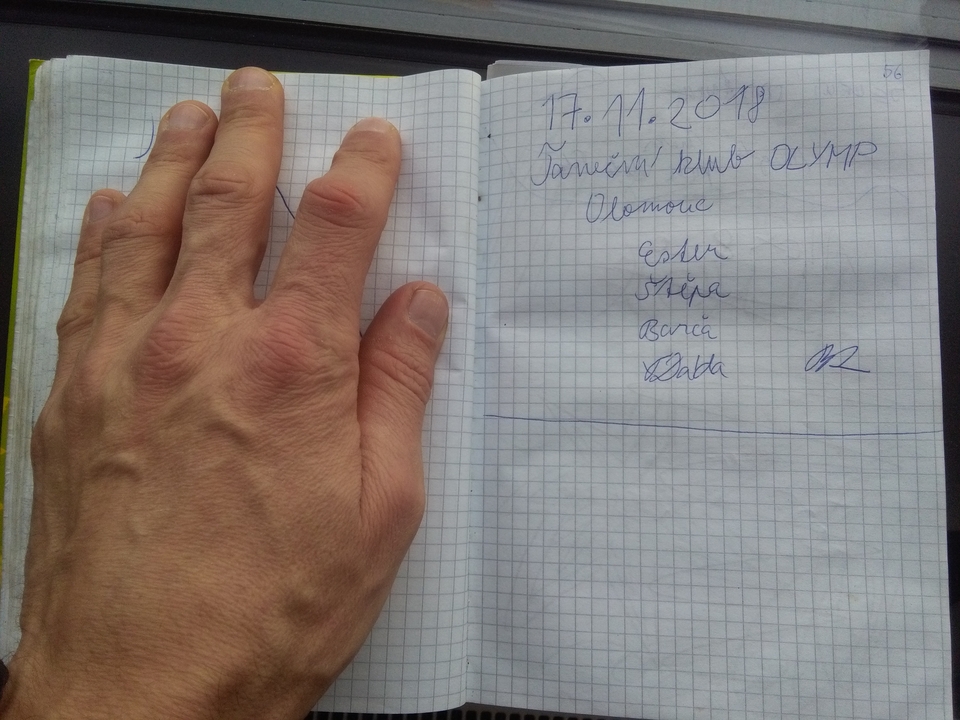 56
17.11.2018
Taneční klub OLYMP
Olomouc
Ester
Štěpa
Barča